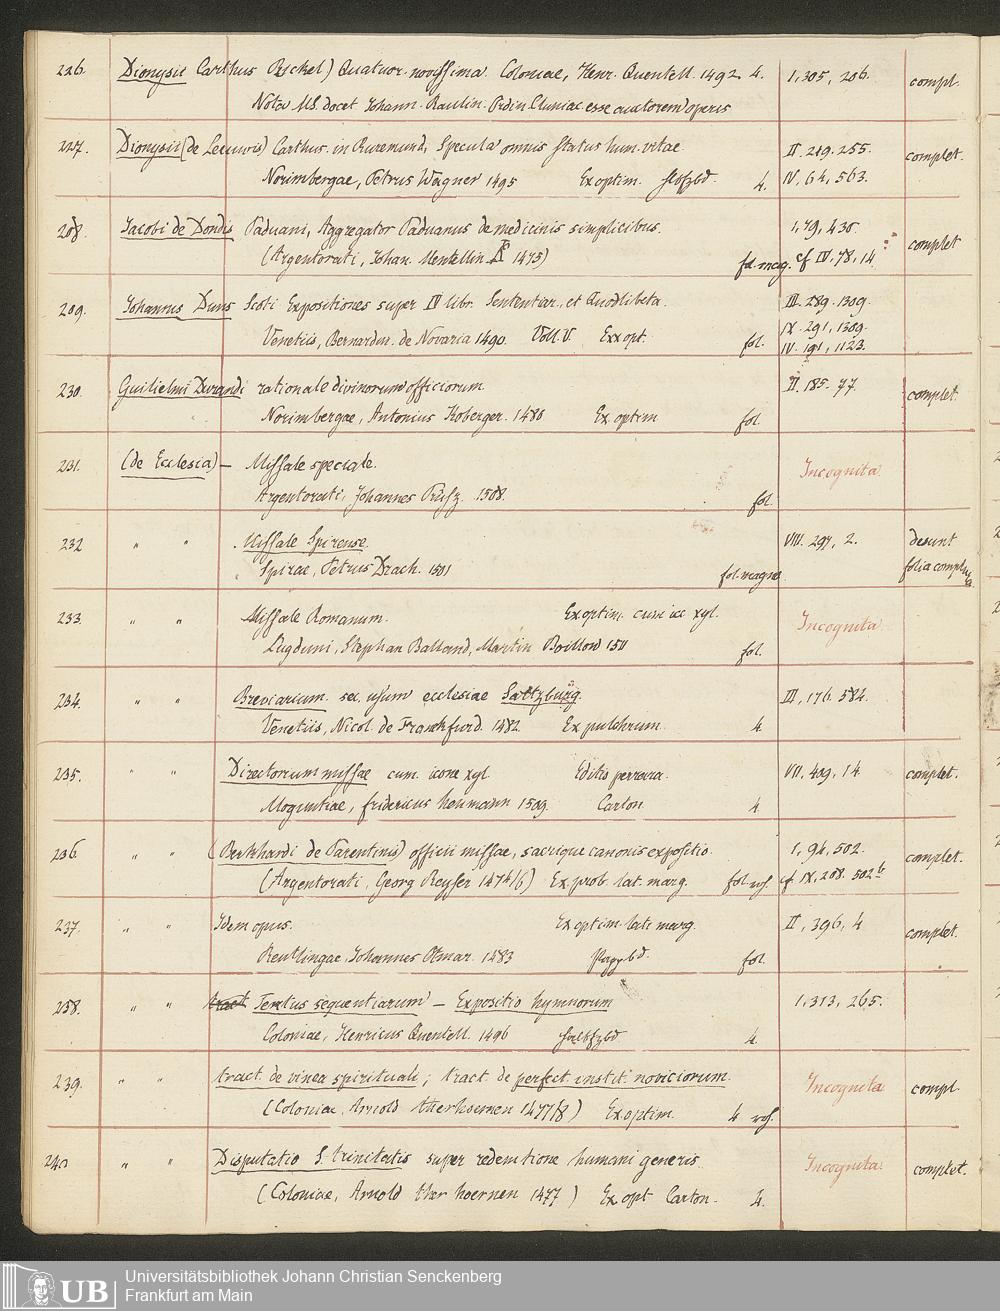 226. Dionysii Carthus Ryckel) Quatuor novissima. Coloniae, Henr. Quentell. 1492 4. I, 305, 206. compl.
Nota MS. docet Johann. Raulin. Ordin Cluniac esse auctorem operis
227. Dionysii (de Leeuwis) Carthus. in Ruremund, Specula omnis status hum. vitae II 219. 255. complet.
Norimbergae, Petrus Wagner 1495 Ex optim. Hlbfzbd. 4. IV, 64, 563.
208. Jacobi de Dondis Paduani, Aggregator Paduanus de medicinis simplicibus. I, 79, 430. complet
(Argentorati, Johan. Mentellin. 1475) fol. mag. cf IV, 78, 14.
209. Johannis Duns Scoti Expositiones super IV libr. Sententiar. et Quodlibeta. III. 289. 1309.
Venetiis, Bernardin. de Novaria 1490. Voll. V. Exx opt. fol. IX. 291, 1309.
IV. 191, 1123.
230. Guilielmi Durandi rationale divinorum officiorum. II, 185. 77 complet.
Norimbergae, Antonius Koberger. 1480 Ex optim fol.
231. (de Ecclesia) — Missale speciale. Incognita
Argentorati, Johannes Prüss. 1508. fol.
232 " " Missale Spirense. VIII. 297, 2. desunt
Spirae, Petrus Drach. 1501 fol. magno folia
233. " " Missale Romanum. Ex optim. cum icc xyl. Incognita
Lugduni, Stephan Balland, Martin Boillon 1511 fol.
234. " " Breviarium sec. usum ecclesiae Saltzburg. III, 176. 584.
Venetiis, Nicol. de Frankfurd. 1482. Ex pulchrum. 4.
235. " " Directorium missae cum icone xyl. Editio perrara. VII, 419, 14 complet.
Moguntiae, fridericus heumann 1509. Carton 4
236. " " (Bernhardi de Parentinis) officii missae, sacrique canonis expositio. I, 94, 502. complet.
(Argentorati, Georg Reyser 1474/6) Ex. prob. lat. marg. fol. goth. cf IX, 208. 502b
237. " " Idem opus. Ex optim. lati marg. II, 396, 4 complet.
Reutlingae, Johannes Otmar. 1483 Pappbd. fol.
238. " " Textus sequentiarum — Expositio hymnorum I, 313, 265.
Coloniae, Henricus Quentell. 1496 Halbfzbd 4.
239. " " tract. de vinea spirituali; tract. de perfect. instit. noviciorum. Incognita compl.
(Coloniae, Arnold therhoernen 1477/8) Ex optim. 4
240 " " Disputatio S. trinitatis super redemtione humani generis. Incognita complet.
(Coloniae, Arnold ther hoernen 1477) Ex opt Carton. 4.
UB Universitätsbibliothek Johann Christian Senckenberg
Frankfurt am Main